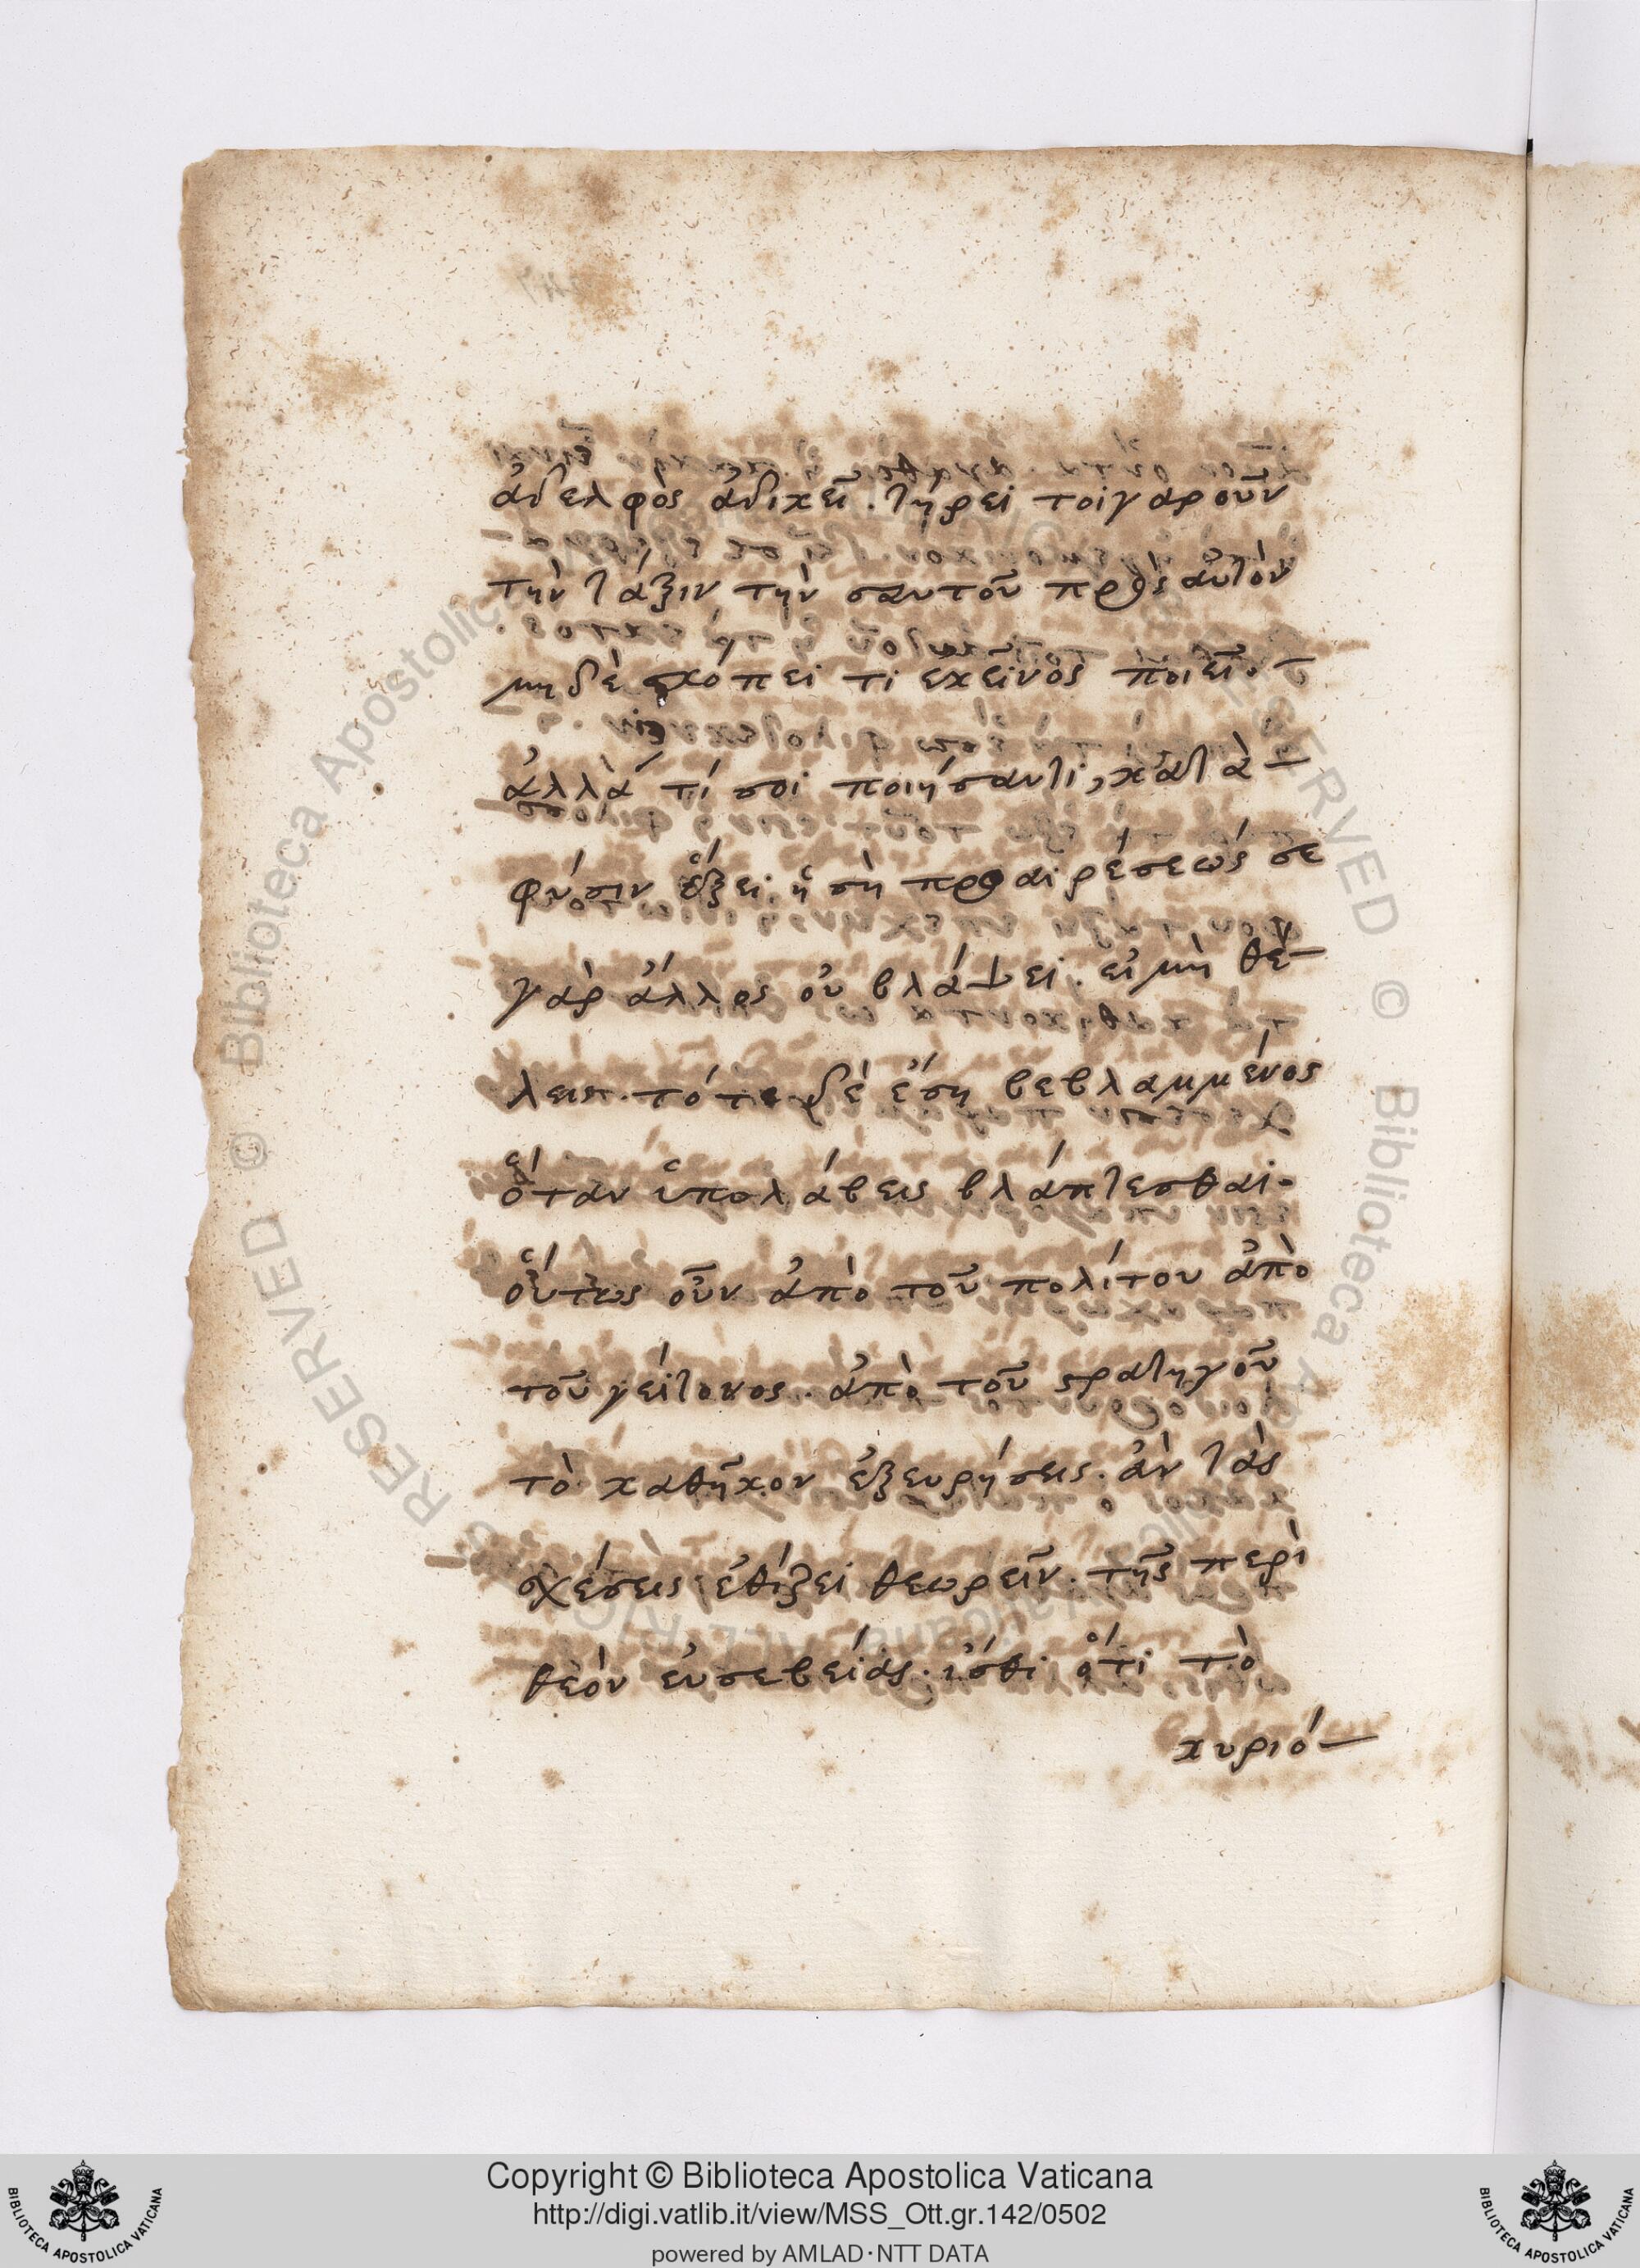 ἀδελφὸς ἀδικεῖ. τήρει τοιγαροῦν
τὴν τάξιν τὴν σαυτοῦ πρὸς αὐτὸν
μηδὲ σκόπει τι ἐκεῖνος ποιεῖ.
ἀλλὰ τί σοι ποιήσαντι, κατὰ
φύσιν ἕξει ἡ σὴ προαιρέσεως σε
γὰρ ἄλλος οὐ βλάψει. εἰ μὴ θέ-
λεις. τότε δὲ ἔση βεβλαμμένος
ὅταν ὑπολάβεις βλάπτεσθαι.
οὕτως οὖν ἀπὸ τοῦ πολίτου ἀπὸ
τοῦ γείτονος. ἀπὸ τοῦ στρατηγοῦ
τὸ καθῆκον ἐξευρήσεις. ἀν τὰς
σχέσεις ἐθίζει θεωρεῖν. τῆς περὶ
θεὸν εὐσεβείας. ἴσθι ὅτι τὸ
κυριό-
Copyright © Biblioteca Apostolica Vaticana
http://digi.vatlib.it/view/MSS_Ott.gr.142/0502
powered by AMLAD·NTT DATA
BIBLIOTECA APOSTOLICA VATICANA
BIBLIOTECA APOSTOLICA VATICANA